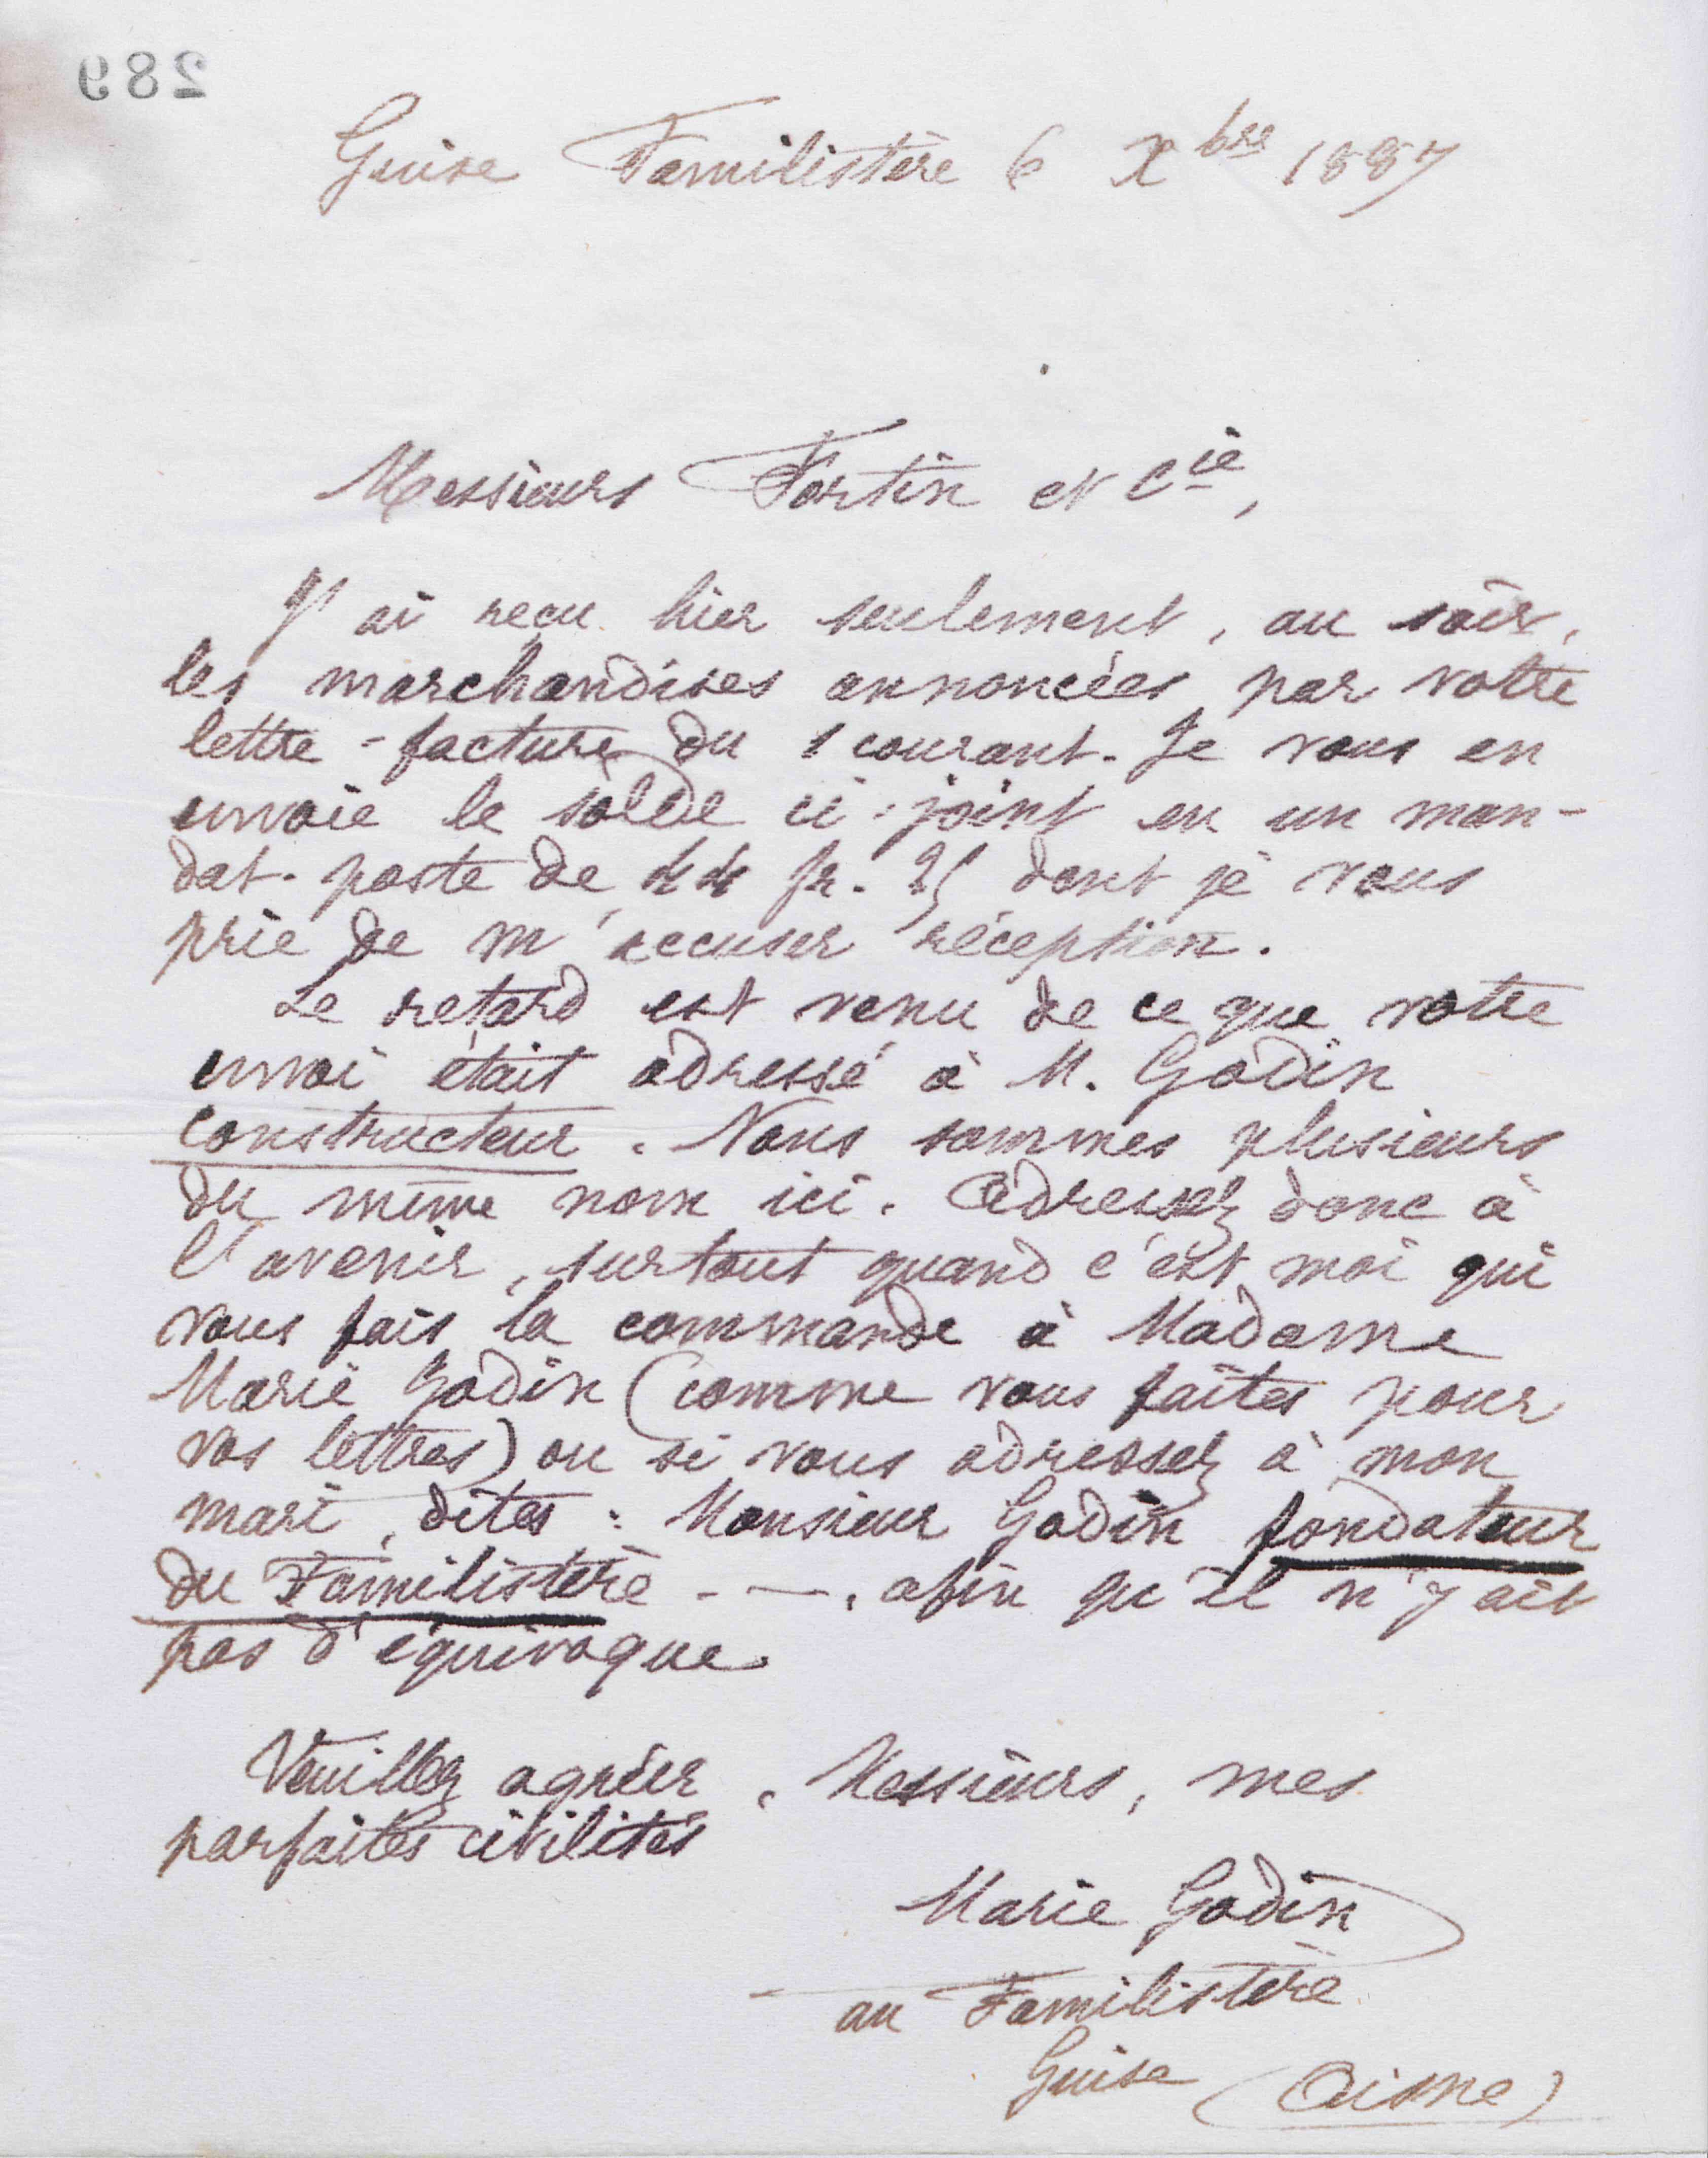 289
Guise Familistère 6 Xbre 1887
Messieurs Fortin et Cie,
J'ai reçu hier seulement, au soir,
les marchandises annoncées par votre
lettre-facture du 1 courant. Je vous en
envoie le solde ci-joint en un man-
dat-poste de 44 fr. 25 dont je vous
prie de m'accuser réception.
Le retard est venu de ce que votre
envoi était adressé à M. Godin
constructeur. Nous sommes plusieurs
du même nom ici. Adressez donc à
l'avenir, surtout quand c'est moi qui
vous fais la commande à Madame
Marie Godin (comme vous faites pour
vos lettres) ou si vous adressez à mon
mari, dites : Monsieur Godin fondateur
du Familistère - —, afin qu'il n'y ait
pas d'équivoque.
Veuillez agréer, Messieurs, mes
parfaites civilités
Marie Godin
au Familistère
Guise (Aisne)